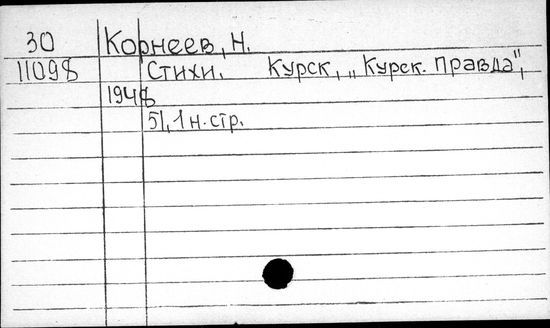 30 Корнеев, Н.
11098 Стихи. Курск, „Курск. правда",
1948
51, 1 н. стр.